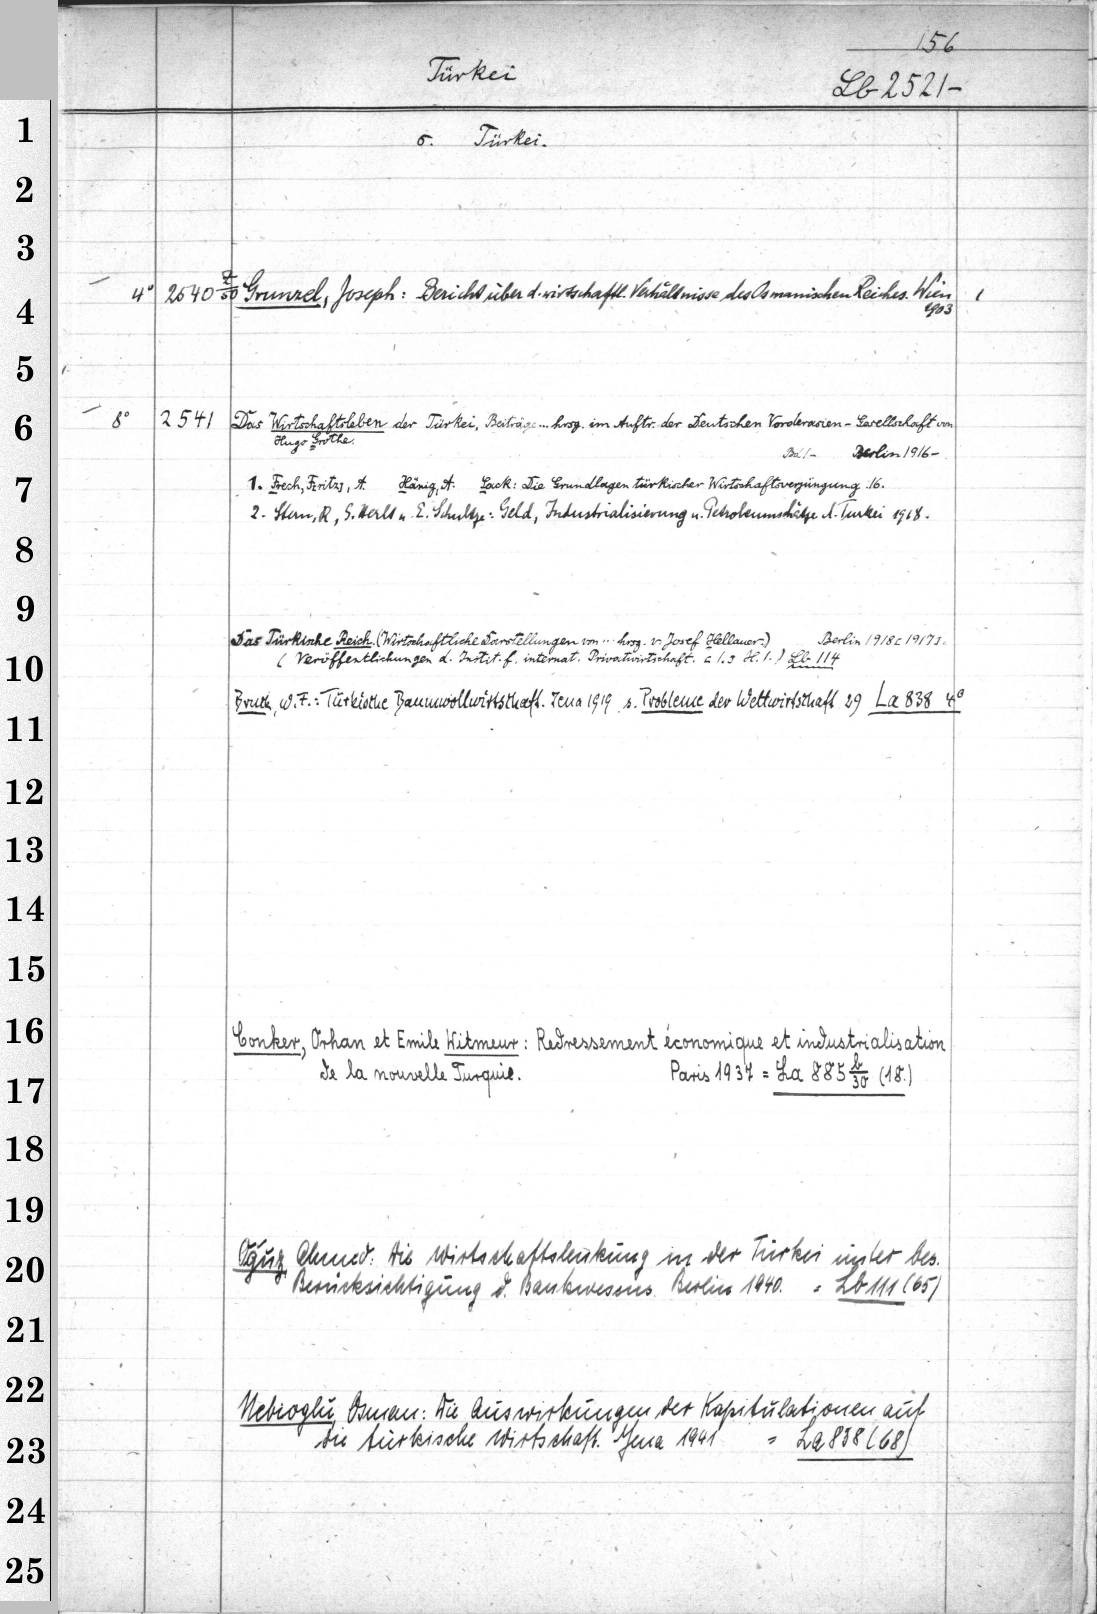 156
Türkei
Lb 2521-
1
σ. Türkei.
2
3
4° 2540 Z/50 Grunzel, Joseph: Bericht über d. wirtschaftl. Verhältnisse des Osmanischen Reiches. Wien 1
1903
4
5
6
8° 2541 Das Wirtschaftsleben der Türkei, Beiträge... hrsg. im Auftr. der Deutschen Vorderasien-Gesellschaft von
Hugo Grothe.
Bd. 1- Berlin 1916-
7
1. Frech, Fritz, A. Hänig, A. Sack: Die Grundlagen türkischer Wirtschaftsverjüngung. 16.
2. Stern, R, G. Herlt u. E. Schultze: Geld, Industrialisierung u. Petroleumschätze d. Türkei 1918.
8
9
Das Türkische Reich. (Wirtschaftliche Darstellungen von ... hrsg. v. Josef Hellauer.) Berlin 1918
10
( Veröffentlichungen d. Instit. f. internat. Privatwirtschaft. H. 1.) Lb 114
Bruck, W. F.: Türkische Baumwollwirtschaft. Jena 1919 s. Probleme der Weltwirtschaft 29 La 838 4°
11
12
13
14
15
16
Conker, Orhan et Emile Witmeur: Redressement économique et industrialisation
de la nouvelle Turquie. Paris 1937 = La 885 b/30 (18.)
17
18
19
20
Oğuz, Ahmed: Die Wirtschaftslenkung in der Türkei unter bes.
Berücksichtigung d. Bankwesens. Berlin 1940. = Lb 111 (65)
21
22
Nebioglu, Osman: Die Auswirkungen der Kapitulationen auf
die türkische Wirtschaft. Jena 1941 = La 838 (68)
23
24
25